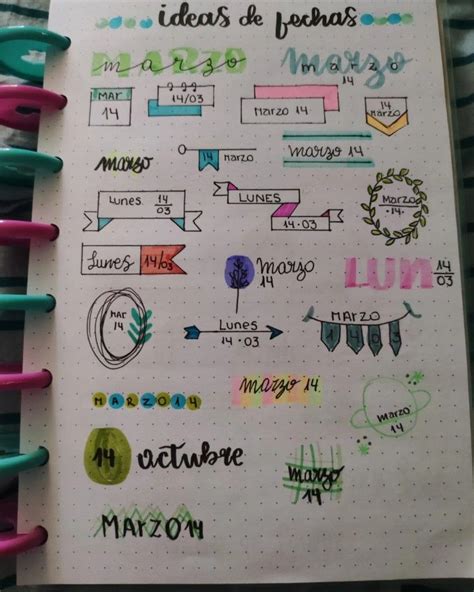 ideas de fechas
marzo
marzo
14
MAR
14
14/03
Marzo 14
14
Marzo
marzo
14
marzo
marzo 14
Lunes
14
03
LUNES
14·03
Marzo
·14·
Lunes
14/03
marzo
14
LUN
14
03
mar
14
Lunes
14·03
MARZO
1 4 0 3
MARZO14
marzo 14
marzo
14
14 octubre
marzo
14
MARZO 14